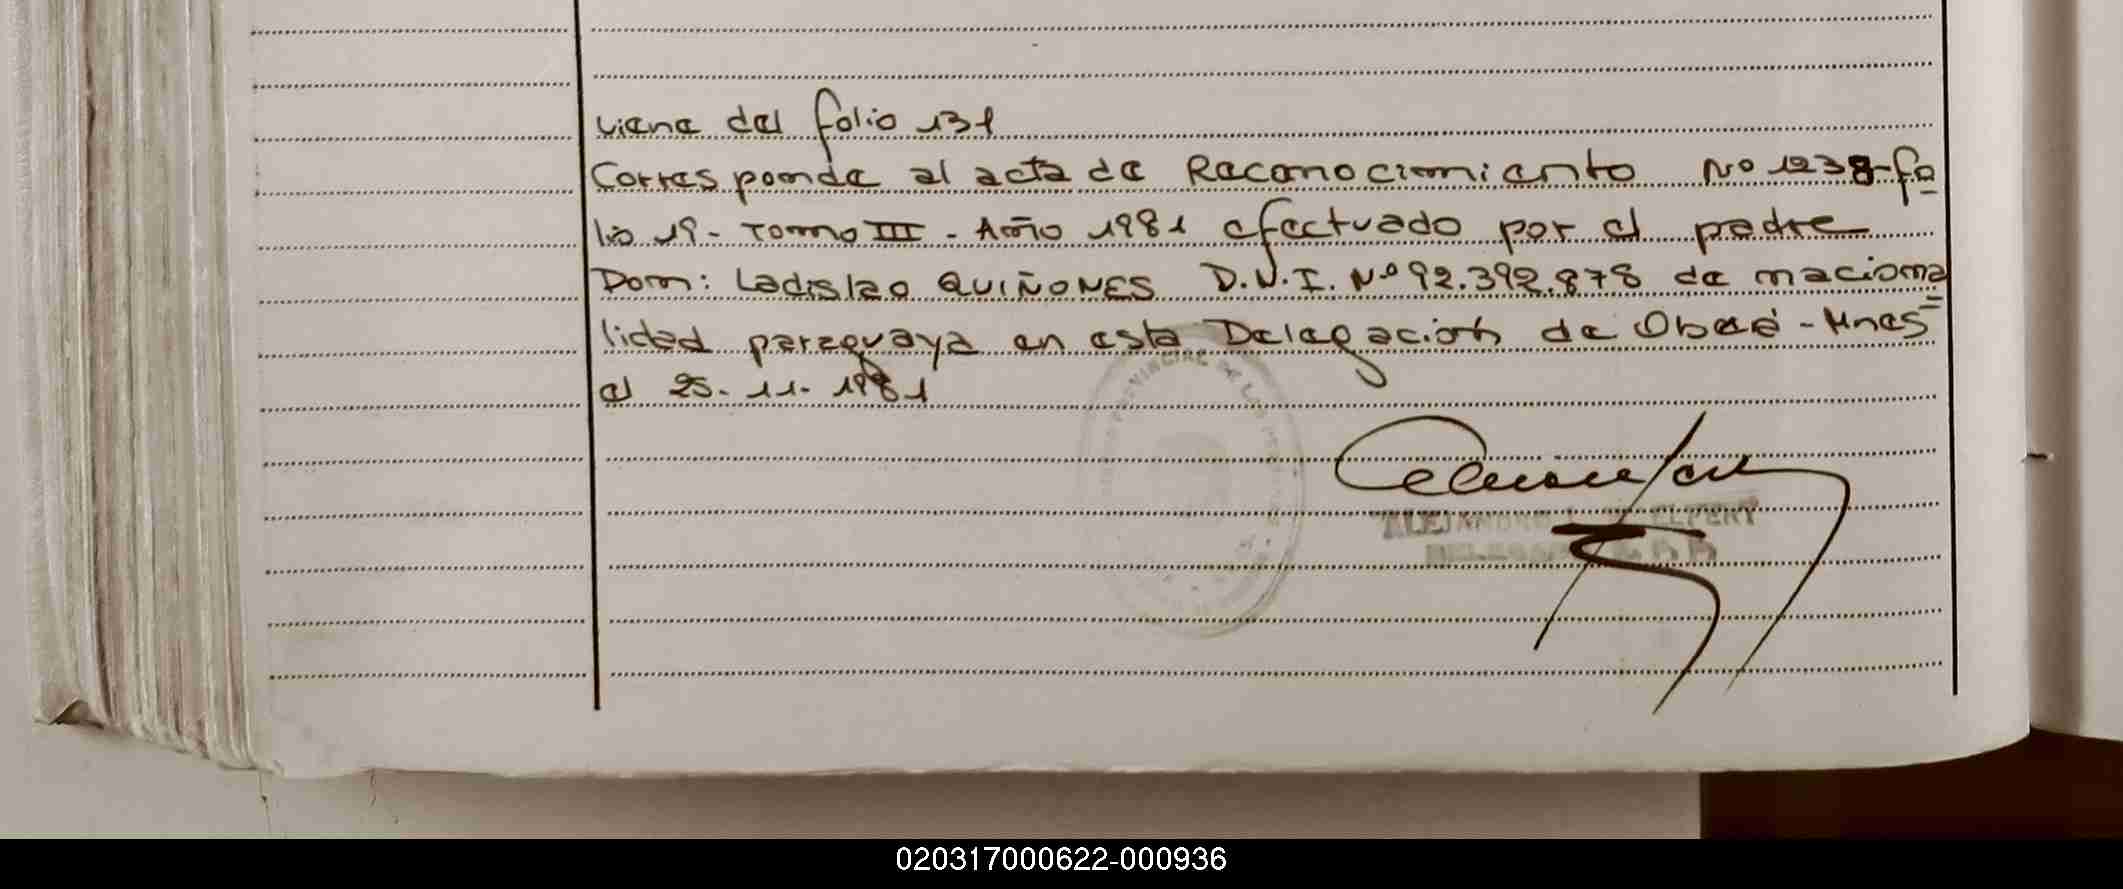 viene del folio 131
Corresponde al acta de Reconocimiento Nº 1238-fo
lio 19- Tomo III - Año 1981 efectuado por el padre
Don: Ladislao QUIÑONES D.N.I. Nº 92.392.878 de naciona
lidad paraguaya en esta Delegación de Oberá - Mnes=
el 25-11-1981
ALEJANDRO
020317000622-000936